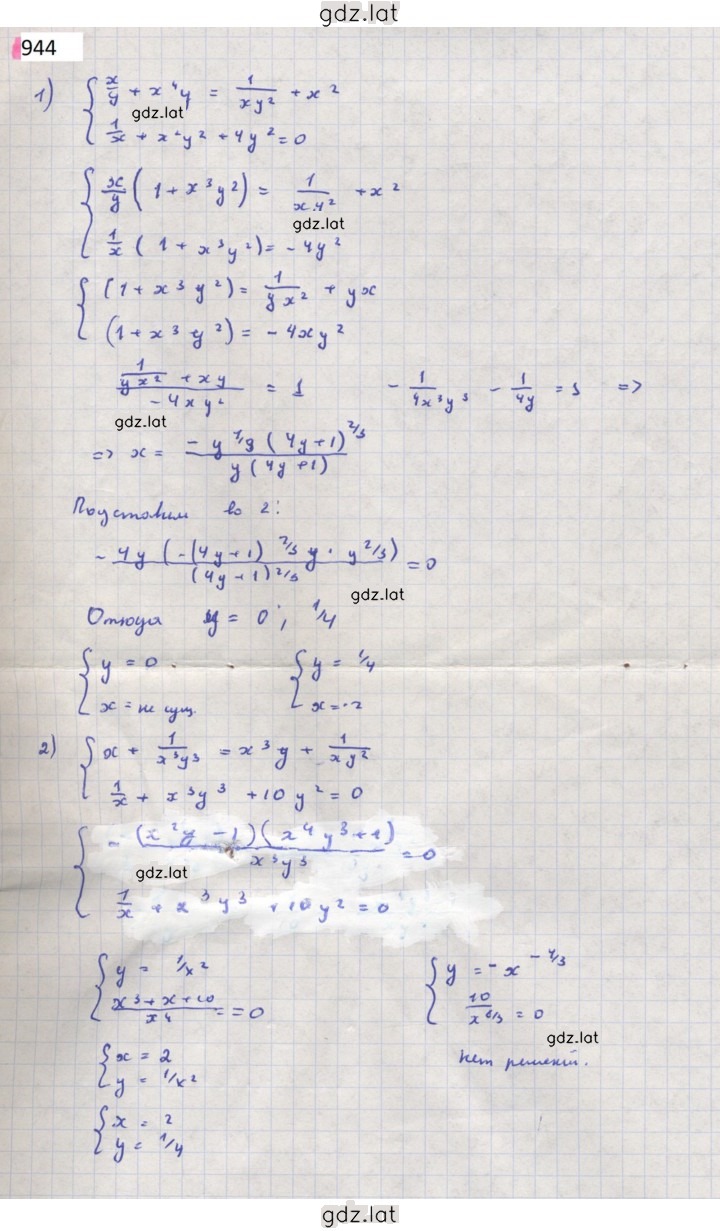 gdz.lat
944
1) { x/y + x⁴y = 1/(xy²) + x²
gdz.lat
1/x + x²y² + 4y² = 0
{ x/y (1 + x³y²) = 1/(xy²) + x²
gdz.lat
1/x (1 + x³y²) = - 4y²
{ (1 + x³y²) = 1/(yx²) + yx
(1 + x³y²) = - 4xy²
(1/(yx²) + xy)/(- 4xy²) = 1 - 1/(4x³y³) - 1/(4y) = 1 =>
gdz.lat
=> x = (- y^(1/3) (4y+1)^(2/3))/(y(4y+1))
Подставим во 2:
- 4y (-(4y+1)^(2/3) y · y^(2/3))/((4y+1)^(2/3)) = 0
gdz.lat
Откуда y = 0; 1/4
{ y = 0 { y = 1/4
x = не сущ. x = -2
2) { x + 1/(x³y³) = x³y + 1/(xy²)
1/x + x³y³ + 10y² = 0
{ - (x²y - 1)(x⁴y³ + 1)/(x³y³) = 0
gdz.lat
1/x + x³y³ + 10y² = 0
{ y = 1/x² { y = - x^(-4/3)
(x³ + x + 10)/x⁴ = = 0 10/x^(8/3) = 0
gdz.lat
{ x = 2 Нет решений.
y = 1/x²
{ x = 2
y = 1/4
gdz.lat